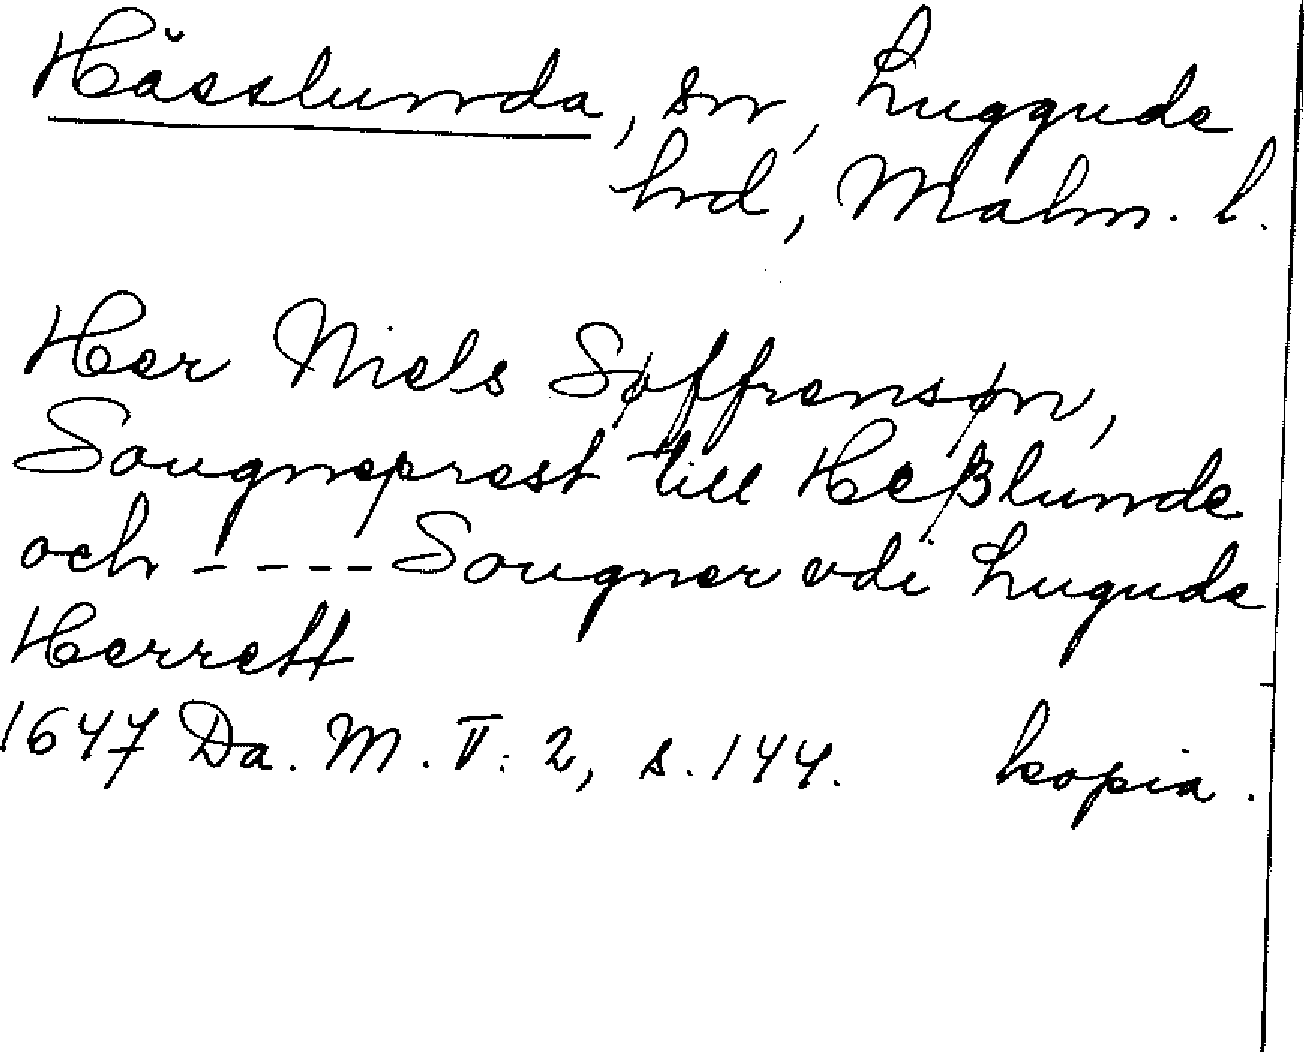 Hässlunda, sn, Luggude
hrd, Malm. l.
Her Niels Søffrensøn,
Sougneprest till Heßlunde
och ---- Sougner vdi Lugude
Herrett
1647 Da. M. V: 2, s. 144. kopia.